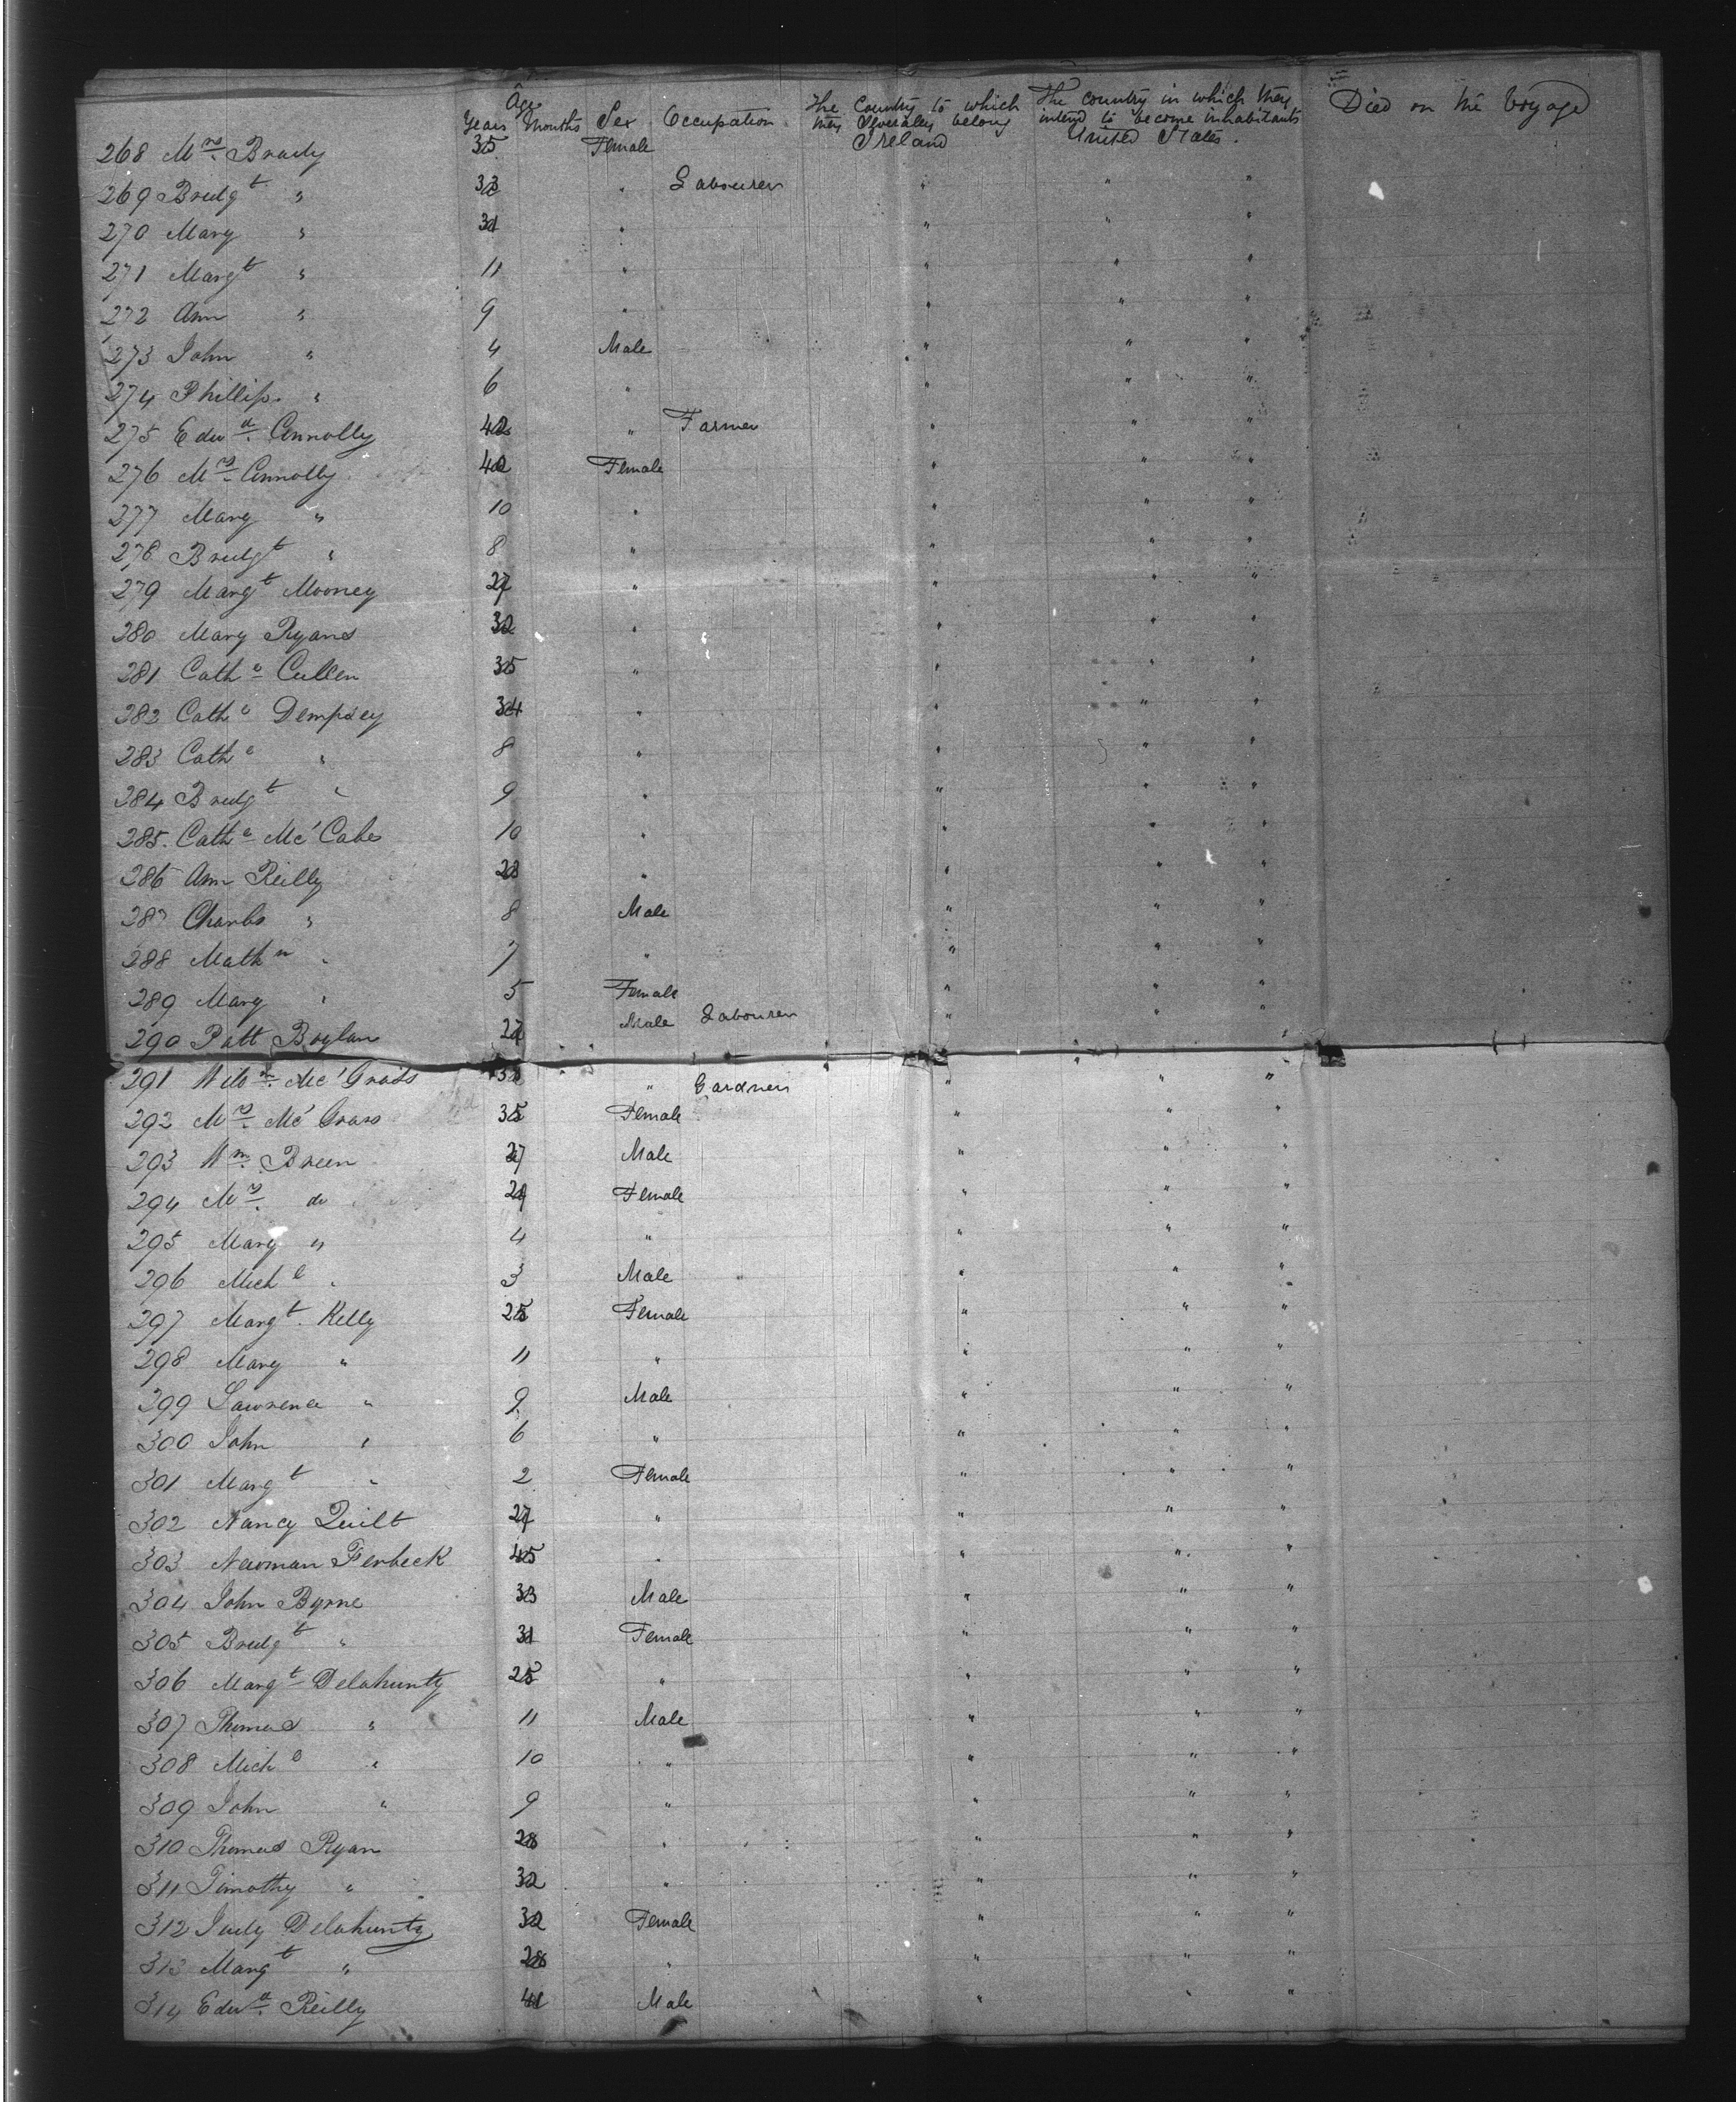 Age
Years Months Sex Occupation The Country to which they severally belong The country in which they intend to become inhabitants Died on the Voyage
268 Mrs. Brady 35 Female Ireland United States.
269 Bridgt " 33 " Labourer " " "
270 Mary " 31 " " " "
271 Margt " 11 " " " "
272 Ann " 9 " " " "
273 John " 4 Male " " "
274 Phillip. " 6 " " " "
275 Edwd. Connolly 42 " Farmer " " "
276 Mrs. Connolly 40 Female " " "
277 Mary " 10 " " " "
278 Bridgt " 8 " " " "
279 Margt Mooney 27 " " " "
280 Mary Ryans 32 " " " "
281 Cathe Cullen 35 " " " "
282 Cathe Dempsey 34 " " " "
283 Cathe " 8 " " " "
284 Bridgt " 9 " " " "
285. Cathe Mc'Cabe 10 " " " "
286 Ann Reilly 28 " " " "
287 Charles " 8 Male " " "
288 Mathw " 7 " " " "
289 Mary " 5 Female " " "
290 Patt Boylan Male Labourer " " "
291 Mc' " Gardner " " "
292 Mrs. Mc' Grass 35 Female " " "
293 Wm. Breen 27 Male " " "
294 Mrs. do 29 Female " " "
295 Mary " 4 " " " "
296 Michl " 3 Male " " "
297 Margt. Kelly 25 Female " " "
298 Mary " 11 " " " "
299 Lawrence " 9 Male " " "
300 John " 6 " " " "
301 Margt " 2 Female " " "
302 Nancy Quilt 27 " " " "
303 Newman Ferbeck 45 " " " "
304 John Byrne 33 Male " " "
305 Bridgt " 31 Female " " "
306 Margt Delahunty 25 " " " "
307 Thomas " 11 Male " " "
308 Michl " 10 " " " "
309 John " 9 " " " "
310 Thomas Ryan 28 " " " "
311 Timothy " 32 " " " "
312 Judy Delahunty 32 Female " " "
313 Margt " 28 " " " "
314 Edwd. Reilly 41 Male " " "